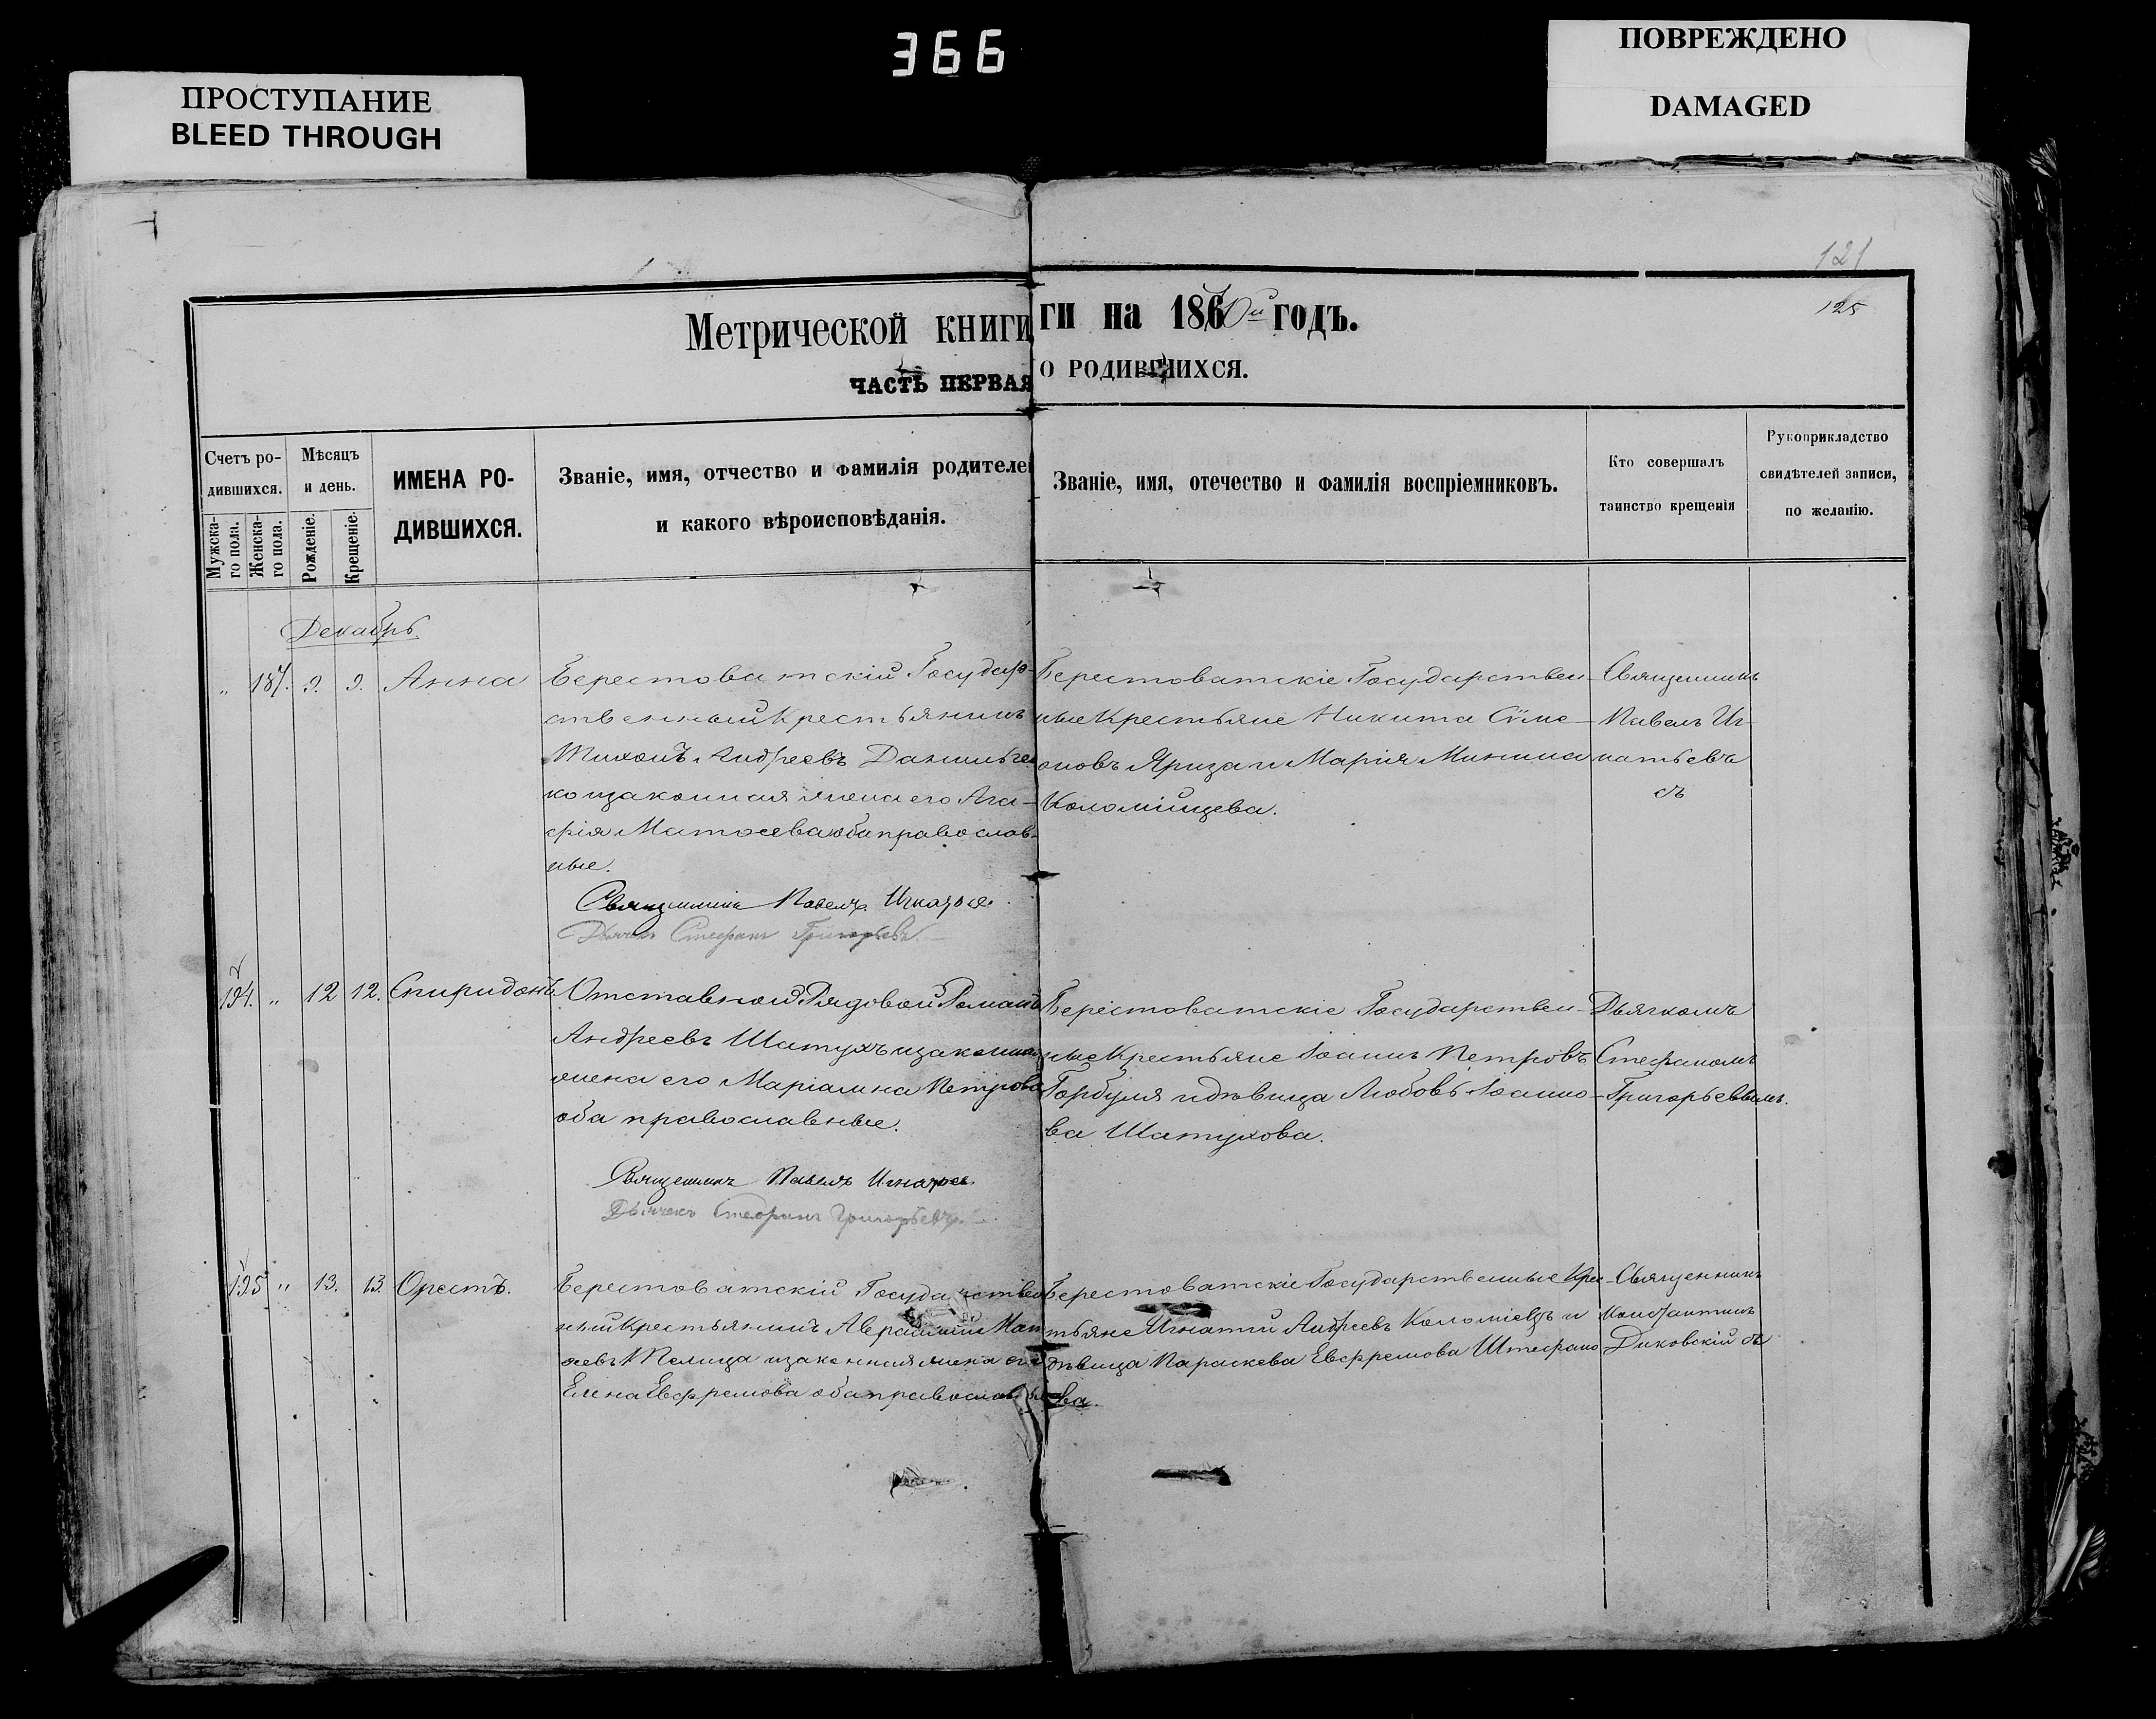 366
ПРОСТУПАНИЕ
BLEED THROUGH
ПОВРЕЖДЕНО
DAMAGED
121
125
Метрической книги
ги на 1870й годъ.
ЧАСТЬ ПЕРВАЯ
О РОДИВШИХСЯ.
Счетъ ро-
дившихся.
Мужска-
го пола.
Женска-
го пола.
Мѣсяцъ
и день.
Рожденіе.
Крещеніе.
ИМЕНА РО-
ДИВШИХСЯ.
Званіе, имя, отчество и фамилія родителей
и какого вѣроисповѣданія.
Званіе, имя, отечество и фамилія воспріемниковъ.
Кто совершалъ
таинство крещенія
Рукоприкладство
свидѣтелей записи,
по желанію.
Декабрь.
" 187. 9. 9. Анна
Берестоватскій Государ-
ственный Крестьянинъ
Тихонъ Андреевъ Данильчен
ко изаконная жена его Ага-
фія Матөеева оба православ-
ные.
Священникъ Павелъ Игнатьев
Дьячекъ Стефанъ Григорьевъ
Берестоватскіе Государствен-
ные Крестьяне Никита Сѵме-
оновъ Яриза и Марія Минина
Коломійцева.
Священникъ
Павелъ Иг-
натьевъ
съ
194. " 12 12. Спиридонъ
Отставной Рядовой Романъ
Андреевъ Шатухъ изаконная
жена его Маріамна Петрова
оба православные.
Священникъ Павелъ Игнатьев
Дьячекъ Стефанъ Григорьевъ
Берестоватскіе Государствен-
ные Крестьяне Іоаннъ Петровъ
Горбуля и дѣвица Любовь Іоанно-
ва Шатухова.
Дьячкомъ
Стефаномъ
Григорьевымъ.
195 " 13. 13. Орестъ.
Берестоватскій Государствен
ный Крестьянинъ Аврамій Мат
өеевъ Телица изаконная жена его
Елена Евфремова оба православные
Берестоватскіе Государственные Крес-
тьяне Игнатій Андреевъ Коломіецъ и
дѣвица Параскева Евфремова Штефано
ва.
Священникъ
Константинъ
Диковскій съ